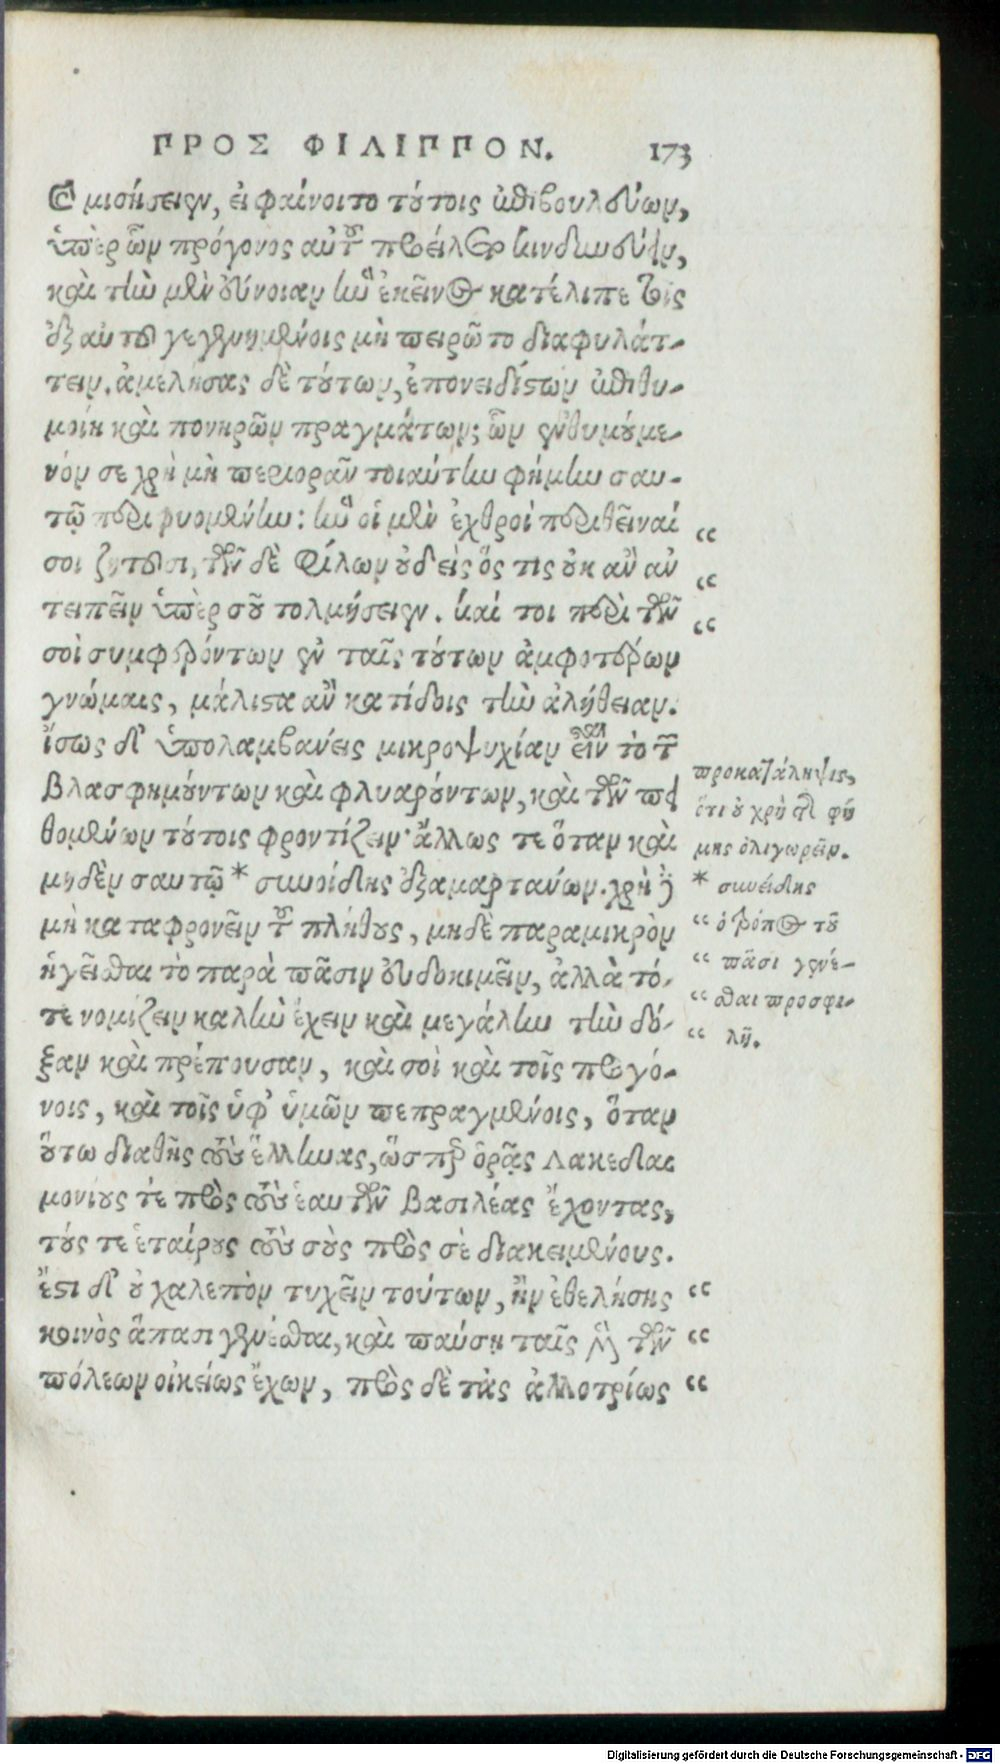 ΠΡΟΣ ΦΙΛΙΠΠΟΝ. 173
καὶ μισήσειεν, εἰ φαίνοιτο τούτοις ἐπιβουλεύων,
ὑπὲρ ὧν πρόγονος αὐτοῦ προείλετο κινδυνεύειν,
καὶ τὴν μὲν εὔνοιαν ἣν ἐκεῖνος κατέλιπε τοῖς
ἐξ αὐτοῦ γεγενημένοις μὴ πειρῶτο διαφυλάτ-
τειν. ἀμελήσας δὲ τούτων, ἐπονειδίστων ἐπιθυ-
μοίη καὶ πονηρῶν πραγμάτων; ὧν ἐνθυμούμε-
νόν σε χρὴ μὴ περιορᾶν τοιαύτην φήμην σαυ-
τῷ περιφυομένην: ἣν οἱ μὲν ἐχθροὶ περιθεῖναί “
σοι ζητοῦσι, τῶν δὲ φίλων οὐδεὶς ὅς τις οὐκ ἂν ἀν “
τειπεῖν ὑπὲρ σοῦ τολμήσειεν. καί τοι περὶ τῶν “
σοὶ συμφερόντων ἐν ταῖς τούτων ἀμφοτέρων
γνώμαις, μάλιστα ἂν κατίδοις τὴν ἀλήθειαν.
ἴσως δ' ὑπολαμβάνεις μικροψυχίαν εἶναι τὸ τῶν
βλασφημούντων καὶ φλυαρούντων, καὶ τῶν πει
θομένων τούτοις φροντίζειν· ἄλλως τε ὅταν καὶ
μηδὲν σαυτῷ * συνοίδης ἐξαμαρτανων. χρὴ δὲ
μὴ καταφρονεῖν τοῦ πλήθους, μηδὲ παραμικρὸν
ἡγεῖσθαι τὸ παρὰ πᾶσιν εὐδοκιμεῖν, ἀλλὰ τό-
τε νομίζειν καλὴν ἔχειν καὶ μεγάλην τὴν δό-
ξαν καὶ πρέπουσαν, καὶ σοὶ καὶ τοῖς προγό-
νοις, καὶ τοῖς ὑφ' ὑμῶν πεπραγμένοις, ὅταν
οὕτω διαθῇς τοὺς ἕλληνας, ὥσπερ ὁρᾷς Λακεδαι
μονίους τε πρὸς τοὺς ἑαυτῶν βασιλέας ἔχοντας,
τούς τε ἑταίρους τοὺς σοὺς πρὸς σὲ διακειμένους.
ἔστι δ' οὐ χαλεπὸν τυχεῖν τούτων, ἢν ἐθελήσῃς “
κοινὸς ἅπασι γενέσθαι, καὶ παύσῃ ταῖς μὲν τῶν “
πόλεων οἰκείως ἔχων, πρὸς δὲ τὰς ἀλλοτρίως “
προκατάληψις,
ὅτι οὐ χρὴ τῆς φή
μης ὀλιγωρεῖν.
* συνείδης
“ ὁ τρόπος τοῦ
“ πᾶσι γενέ-
“ σθαι προσφι-
“ λῆ.
Digitalisierung gefördert durch die Deutsche Forschungsgemeinschaft - DFG